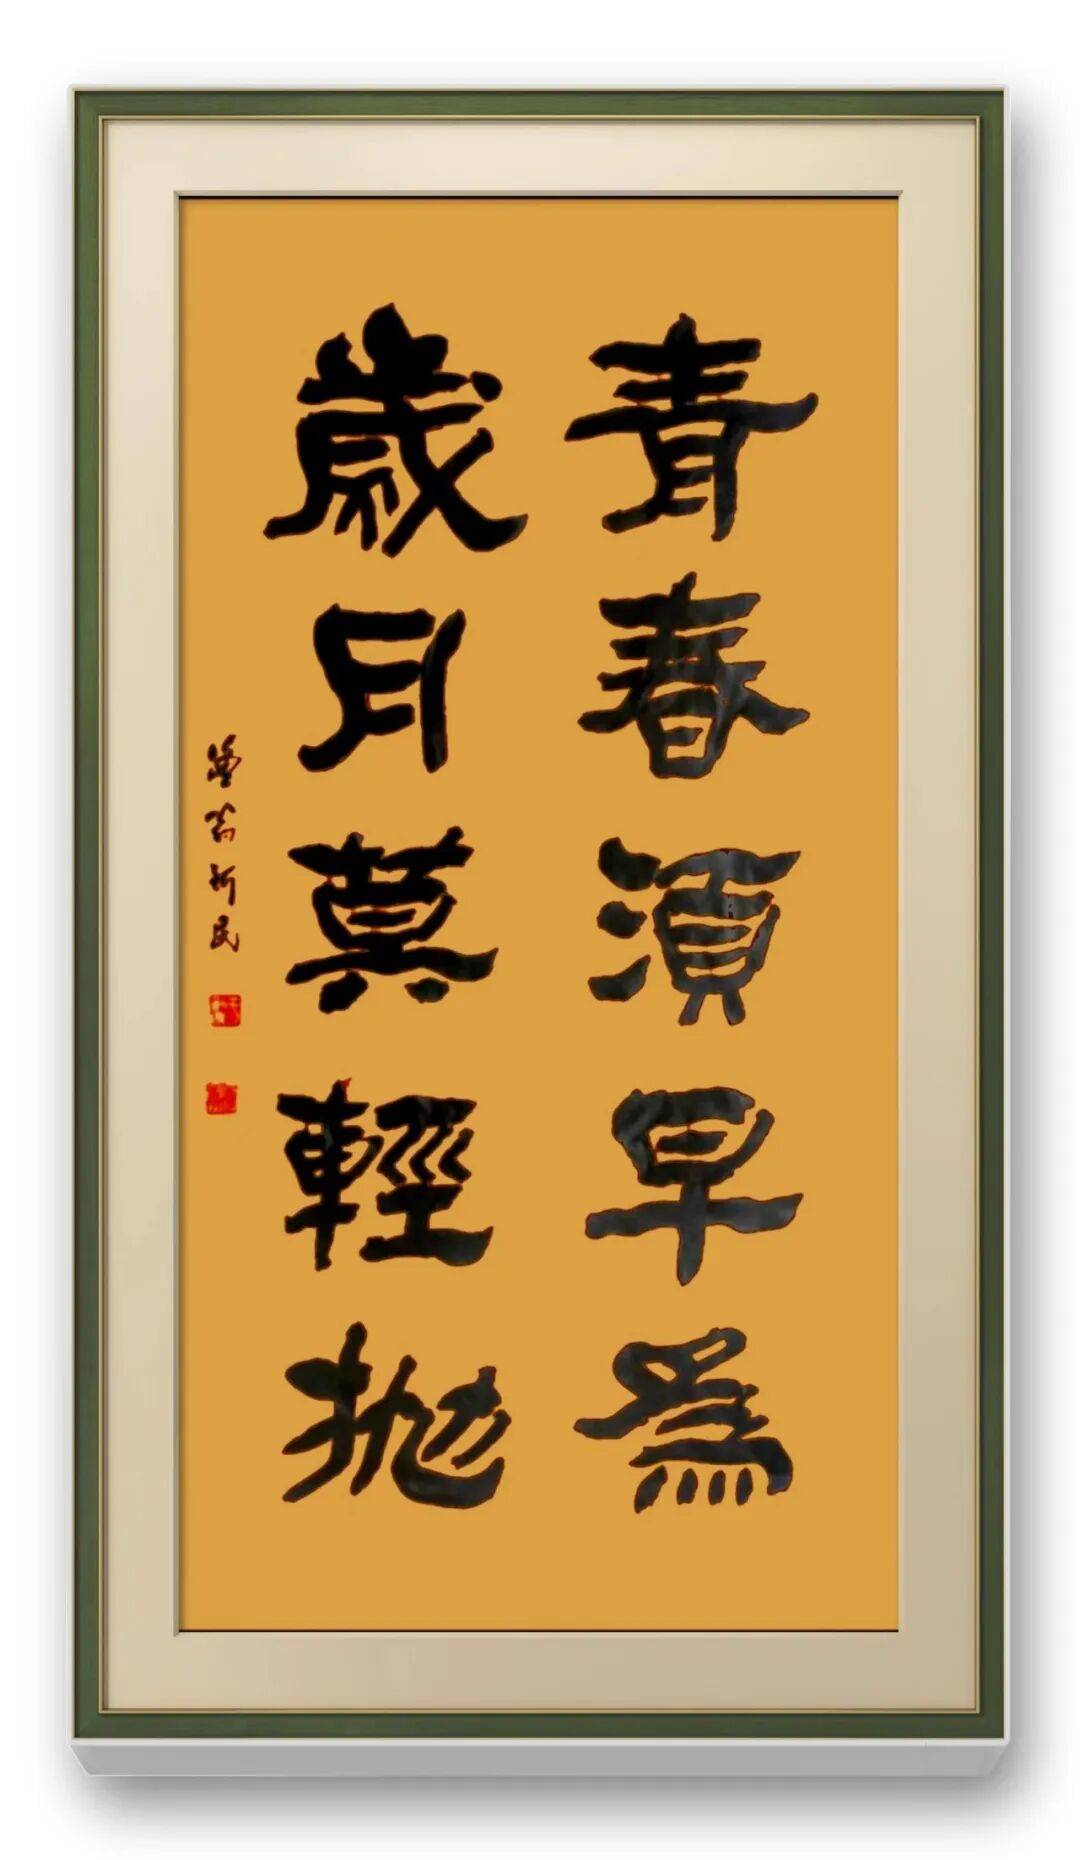 青春須早為
歲月莫輕拋